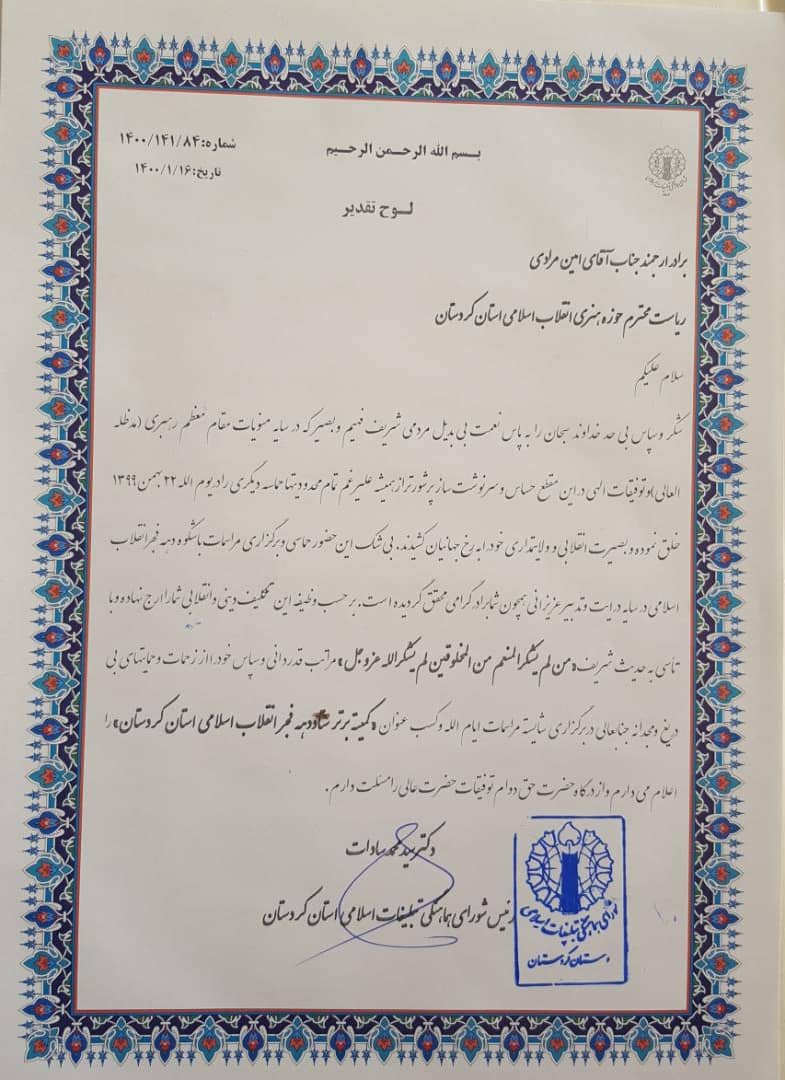 بسم الله الرحمن الرحیم
شماره: ۱۴۰۰/۱۴۱/۸۴
تاریخ: ۱۴۰۰/۱/۱۶
لوح تقدیر
برادر ارجمند جناب آقای امین مرادی
ریاست محترم حوزه هنری انقلاب اسلامی استان کردستان
سلام علیکم
شکر و سپاس بی حد خداوند سبحان را به پاس نعمت بی بدیل مردمی شریف فهیم و بصیر که در سایه منویات مقام معظم رهبری (مدظله
العالی) و توفیقات الهی در این مقطع حساس و سرنوشت ساز پرشورتر از همیشه علیرغم تمام محدودیتها حماسه دیگری را در یوم الله ۲۲ بهمن ۱۳۹۹
خلق نموده و بصیرت انقلابی و ولایتمداری خود را به رخ جهانیان کشیدند. بی شک این حضور حماسی و برگزاری مراسمات باشکوه دهه فجر انقلاب
اسلامی در سایه درایت و تدبیر عزیزانی همچون شما برادر گرامی محقق گردیده است. بر حسب وظیفه این تکلیف دینی و انقلابی شما را ارج نهاده و با
تاسی به حدیث شریف «من لم یشکر المنعم من المخلوقین لم یشکر الله عزوجل» مراتب قدردانی و سپاس خود را از زحمات و حمایتهای بی
دریغ و مجدانه جنابعالی در برگزاری شایسته مراسمات ایام الله و کسب عنوان «کمیته برتر ستاد دهه فجر انقلاب اسلامی استان کردستان» را
اعلام می دارم و از درگاه حضرت حق دوام توفیقات حضرت عالی را مسئلت دارم.
دکتر سید محمد سادات
رئیس شورای هماهنگی تبلیغات اسلامی استان کردستان
شورای هماهنگی تبلیغات اسلامی
استان کردستان